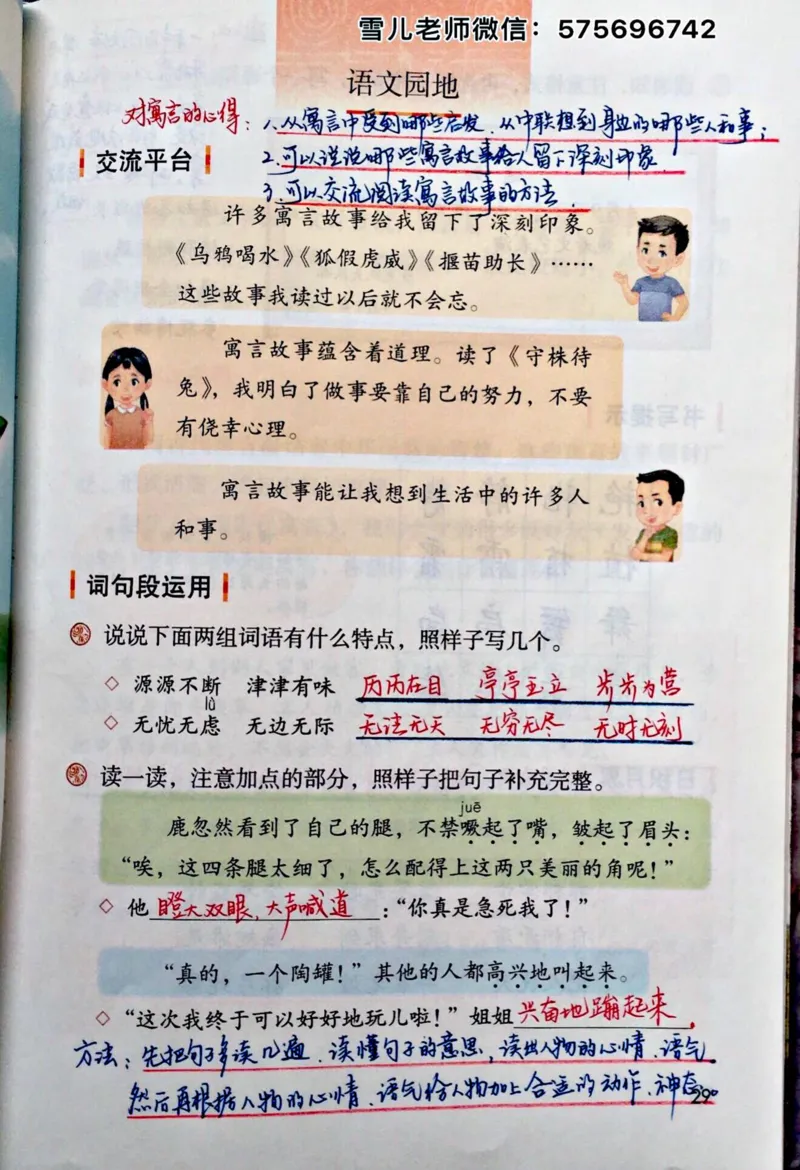 雪儿老师微信：575696742
语文园地
对寓言的心得：1.从寓言中受到哪些启发、从中联想到身边的哪些人和事；
2.可以说说哪些寓言故事给人留下深刻印象
3.可以交流阅读寓言故事的方法
交流平台
许多寓言故事给我留下了深刻印象。
《乌鸦喝水》《狐假虎威》《揠苗助长》……
这些故事我读过以后就不会忘。
寓言故事蕴含着道理。读了《守株待
兔》，我明白了做事要靠自己的努力，不要
有侥幸心理。
寓言故事能让我想到生活中的许多人
和事。
词句段运用
说说下面两组词语有什么特点，照样子写几个。
源源不断 津津有味 历历在目 亭亭玉立 步步为营
lǜ
无忧无虑 无边无际 无法无天 无穷无尽 无时无刻
读一读，注意加点的部分，照样子把句子补充完整。
juē
鹿忽然看到了自己的腿，不禁噘起了嘴，皱起了眉头：
“唉，这四条腿太细了，怎么配得上这两只美丽的角呢！”
他瞪大双眼，大声喊道：“你真是急死我了！”
“真的，一个陶罐！”其他的人都高兴地叫起来。
“这次我终于可以好好地玩儿啦！”姐姐兴奋地蹦起来。
方法：先把句子多读几遍、读懂句子的意思，读出人物的心情、语气
然后再根据人物的心情、语气给人物加上合适的动作、神态。
29